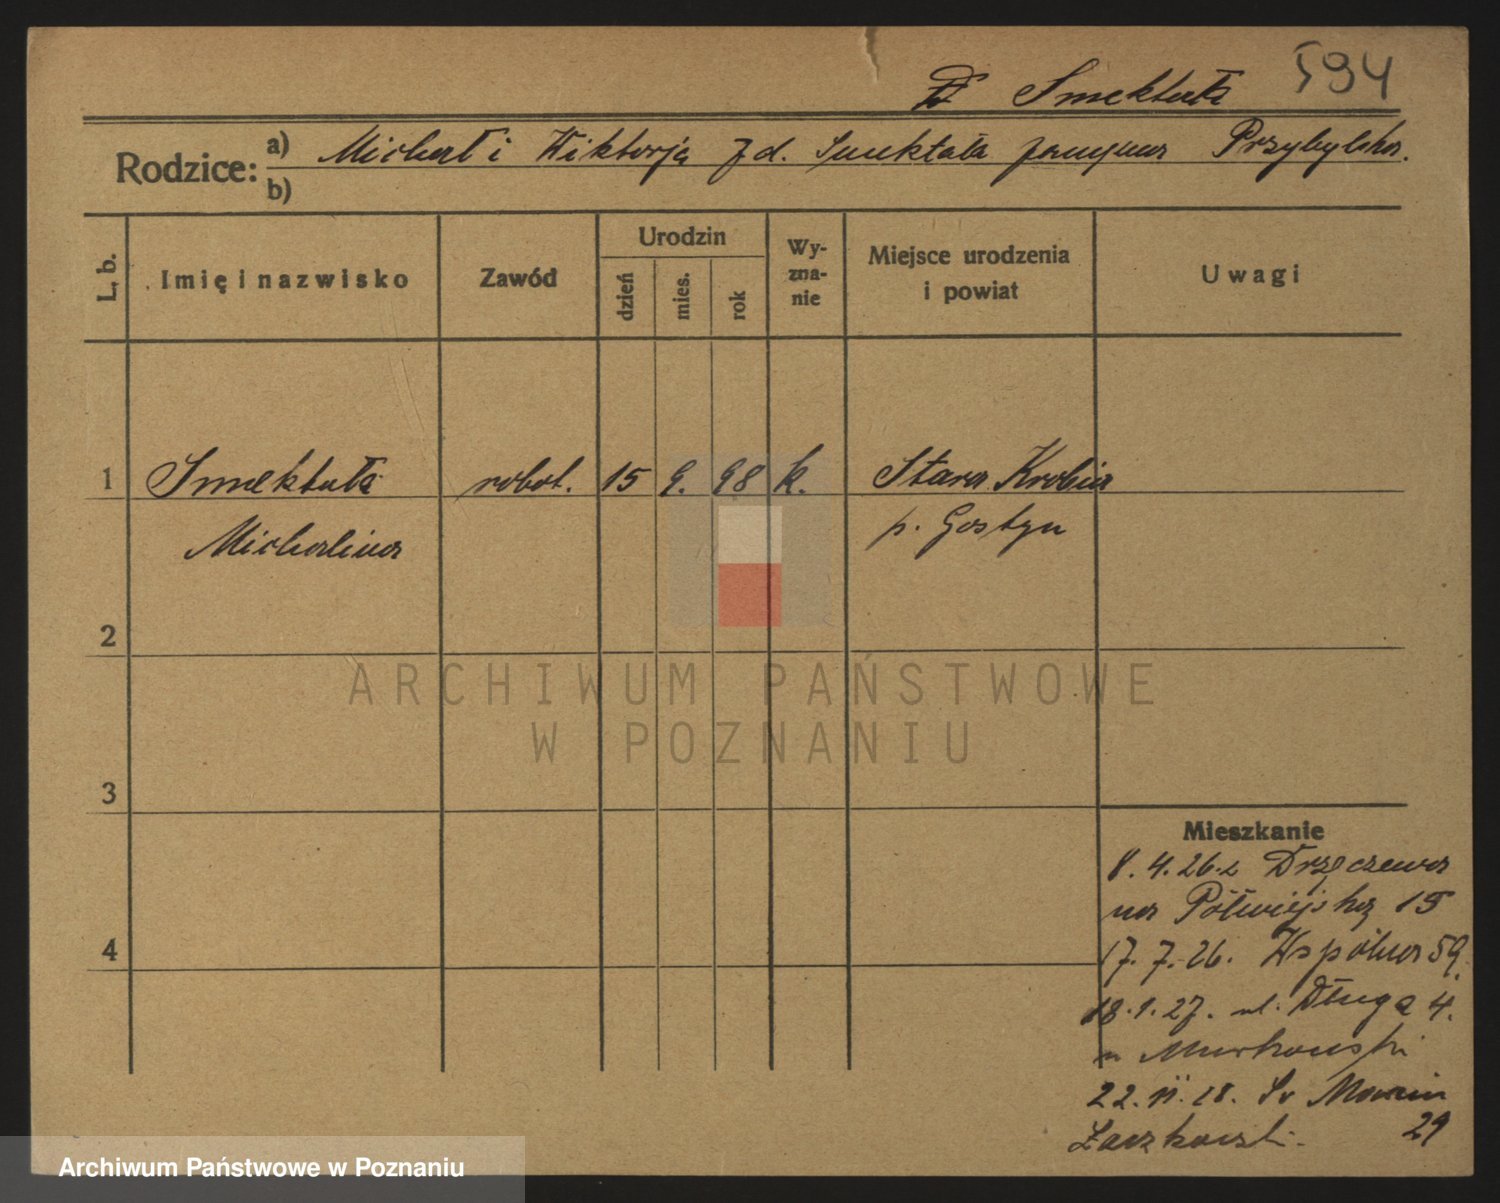 Smektała 594
Rodzice: a) Michał i Wiktorja z d. Smektała panyna Przybylska.
b)
L. b. Imię i nazwisko Zawód Urodzin dzień mies. rok Wy-zna-nie Miejsce urodzenia i powiat Uwagi
1 Smektała robot. 15 9. 98 k. Stara Krobia
Michalina p. Gostyn
2
3
4
Mieszkanie
8.4.26. z Drzęczewa
na Półwiejską 15
17.7.26. Wspólna 59.
18.1.27. ul. Długa 4.
22.11.28. Św Marcin
29
ARCHIWUM PAŃSTWOWE
W POZNANIU
Archiwum Państwowe w Poznaniu